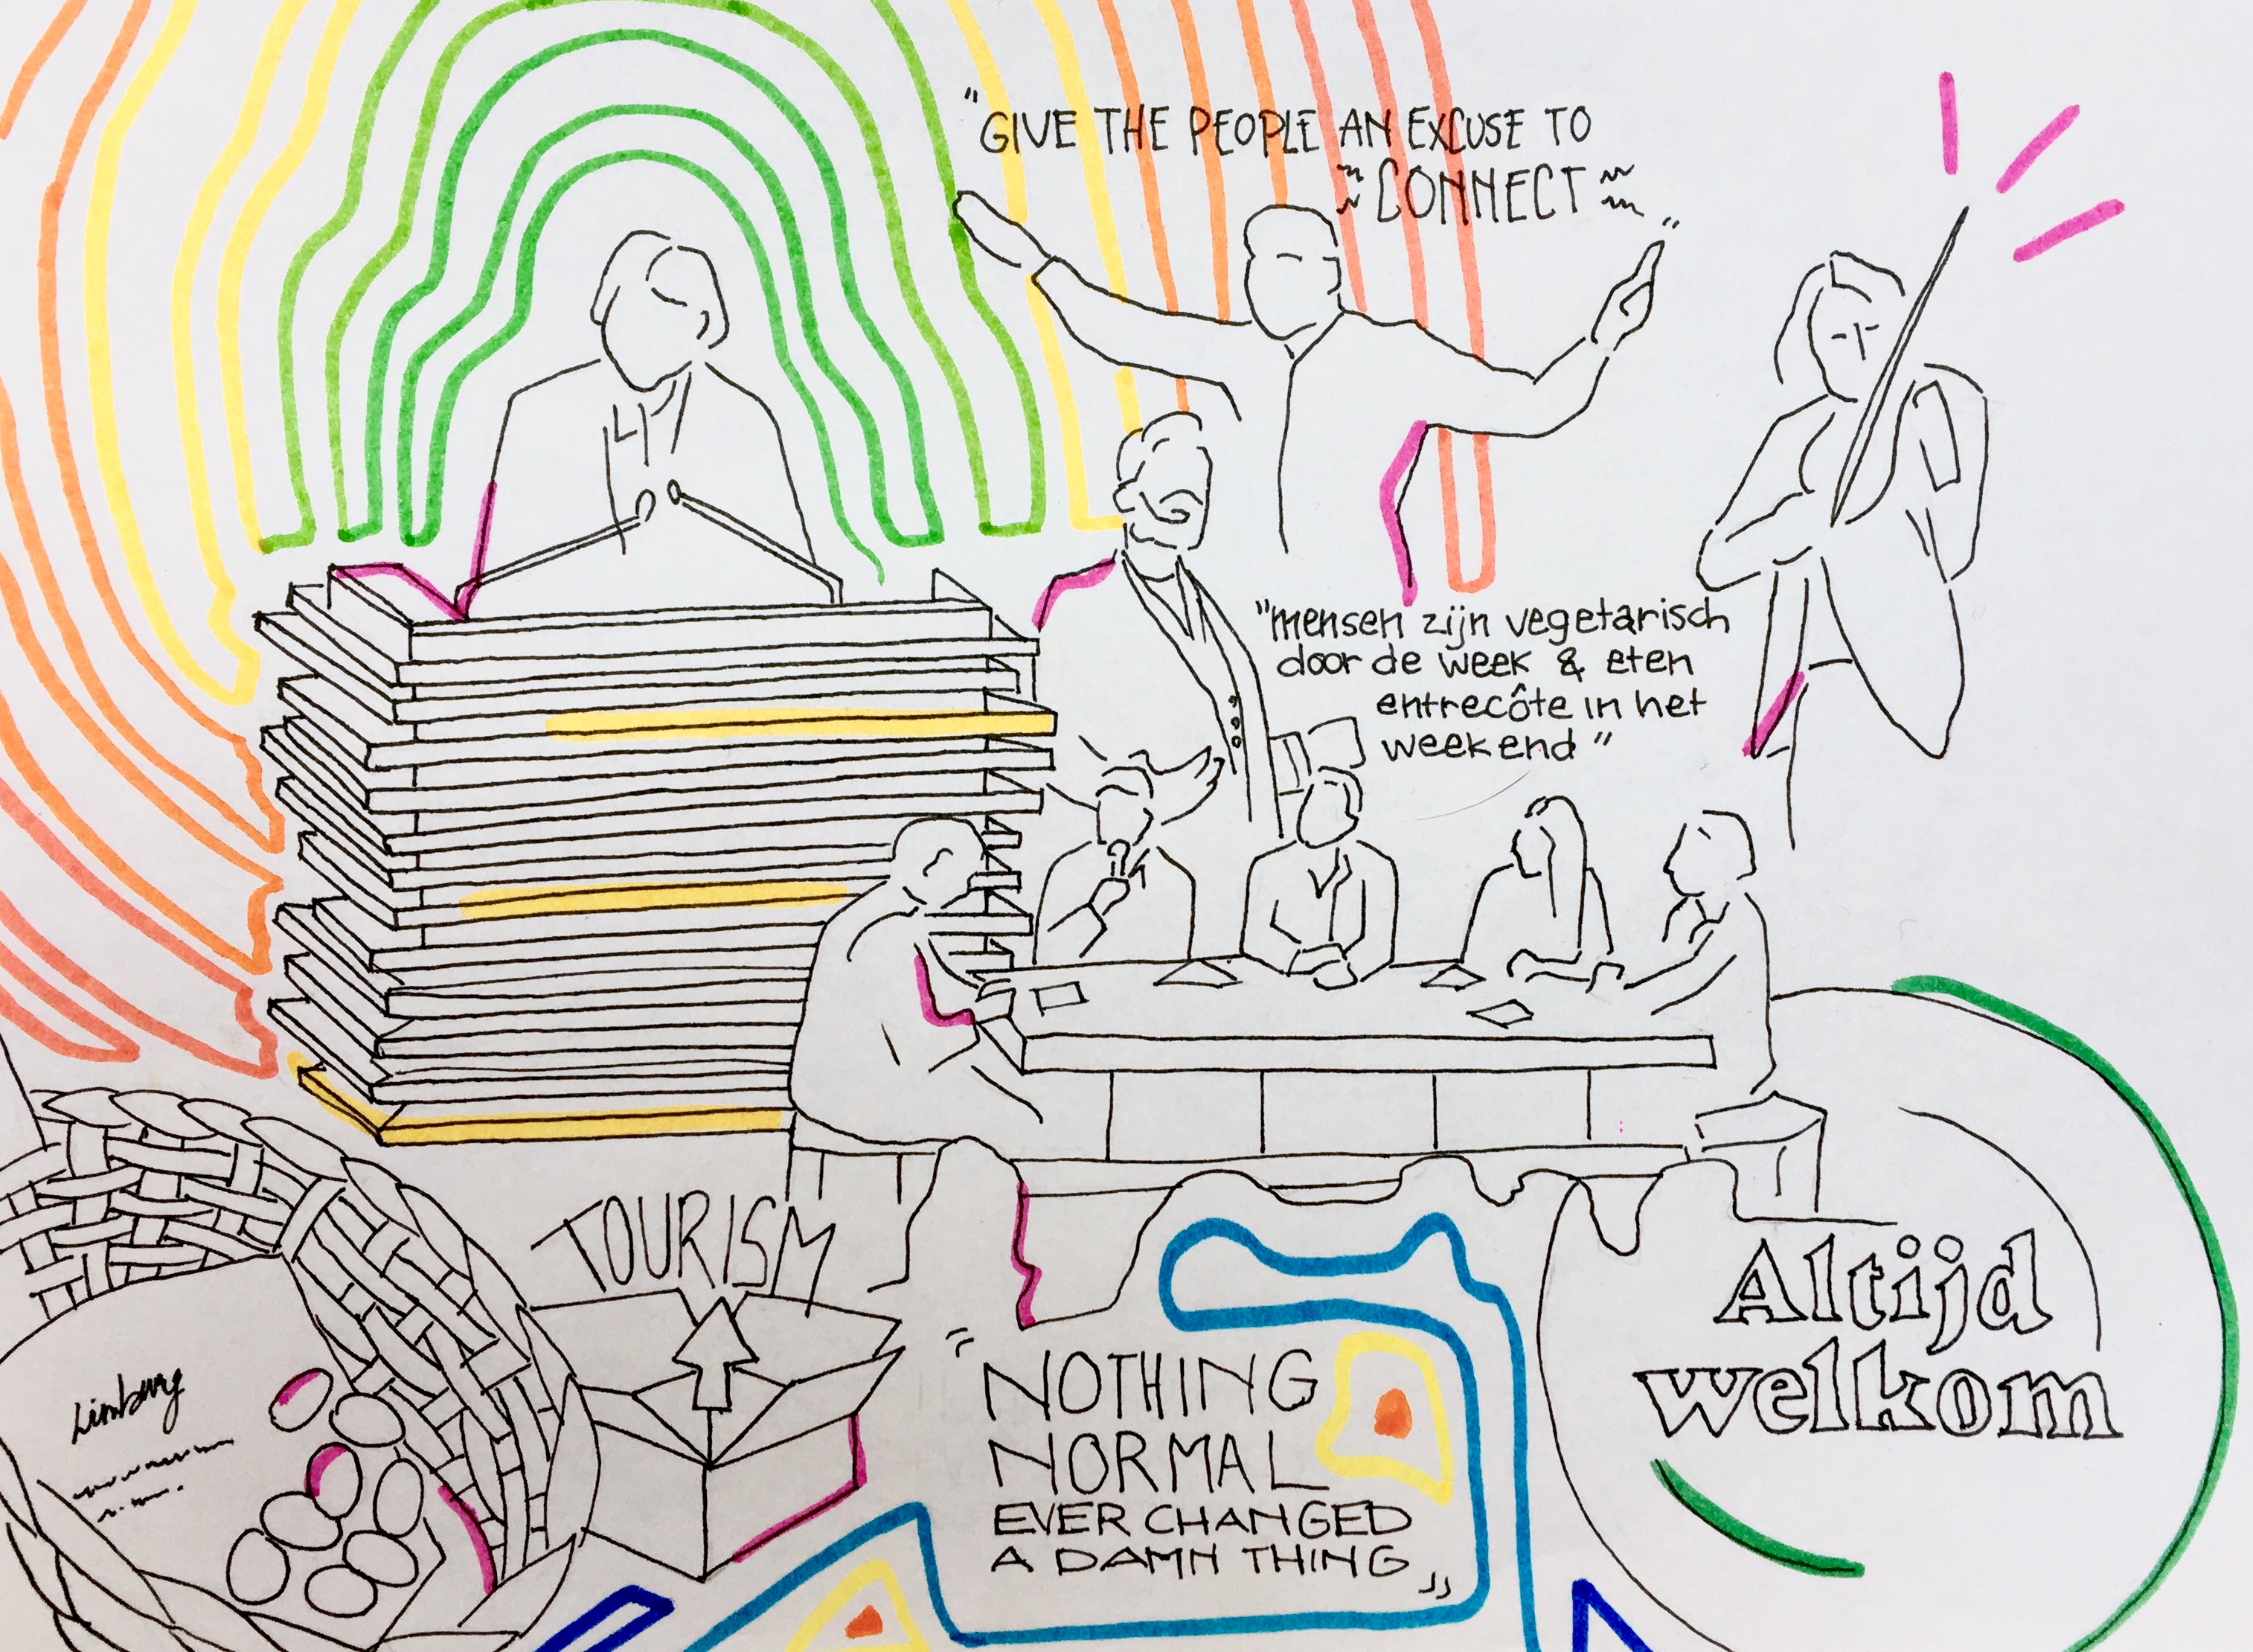 "GIVE THE PEOPLE AN EXCUSE TO
CONNECT"
"mensen zijn vegetarisch
door de week & eten
entrecôte in het
weekend"
TOURISM
Limburg
"NOTHING
NORMAL
EVER CHANGED
A DAMN THING"
Altijd
welkom